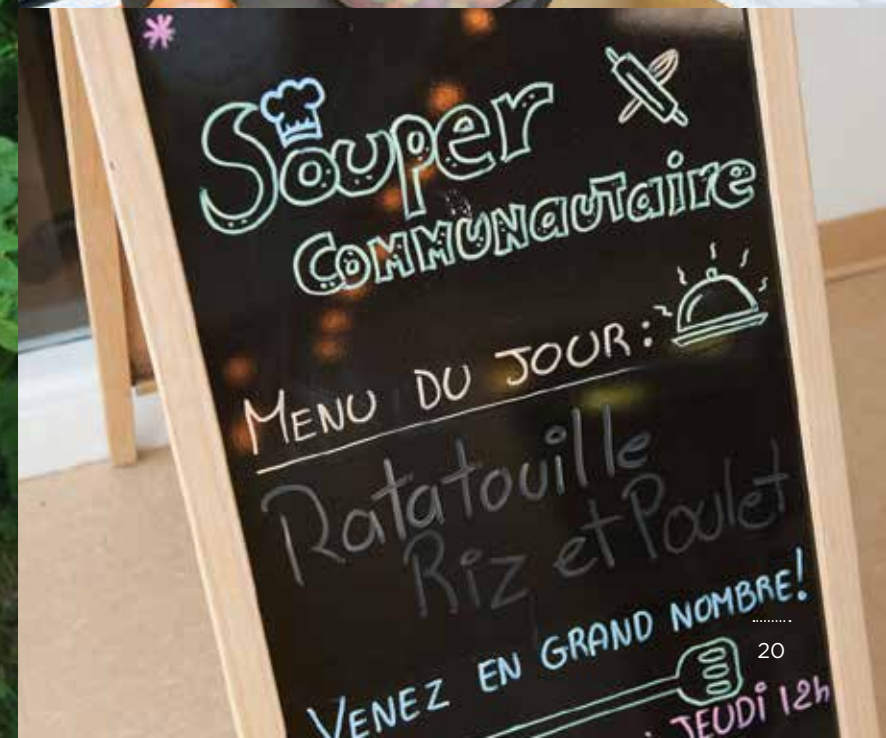 Souper
COMMUNAUTAIRE
MENU DU JOUR:
Ratatouille
Riz et Poulet
VENEZ EN GRAND NOMBRE!
20
JEUDI 12h